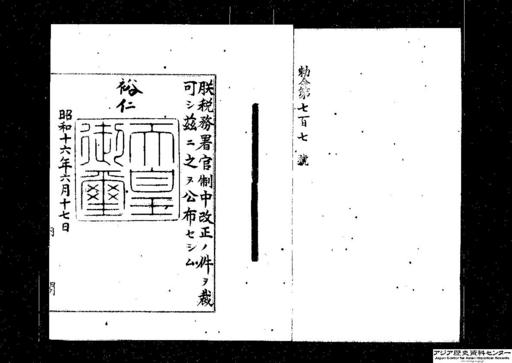 勅令第七百七號
朕税務署官制中改正ノ件ヲ裁
可シ茲ニ之ヲ公布セシム
裕仁
天皇
御璽
昭和十六年六月十七日
内閣
アジア歴史資料センター
Japan Center for Asian Historical Records